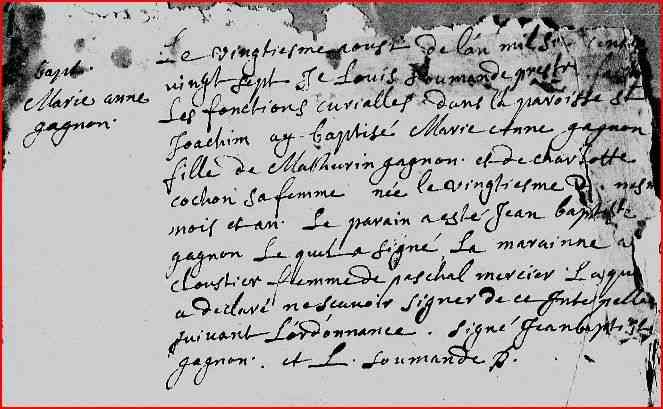 bapt.
Marie anne
gagnon.
Le vingtiesme aoust de lan mil six cens
vingt sept Je Louis Soumande prestre
Les fonctions curialles dans la paroisse St
Joachim ay baptisé Marie Anne gagnon
fille de Mathurin gagnon et de charlotte
cochon sa femme née le vingtiesme
mois et an. Le parain a esté Jean baptiste
gagnon Le quel a signé La marainne
cloustier femme de paschal mercier Laquelle
a declaré ne scavoir signer de ce Interpellée
suivant L'ordonnance. signé Jean baptiste
gagnon. et L. Soumande p.